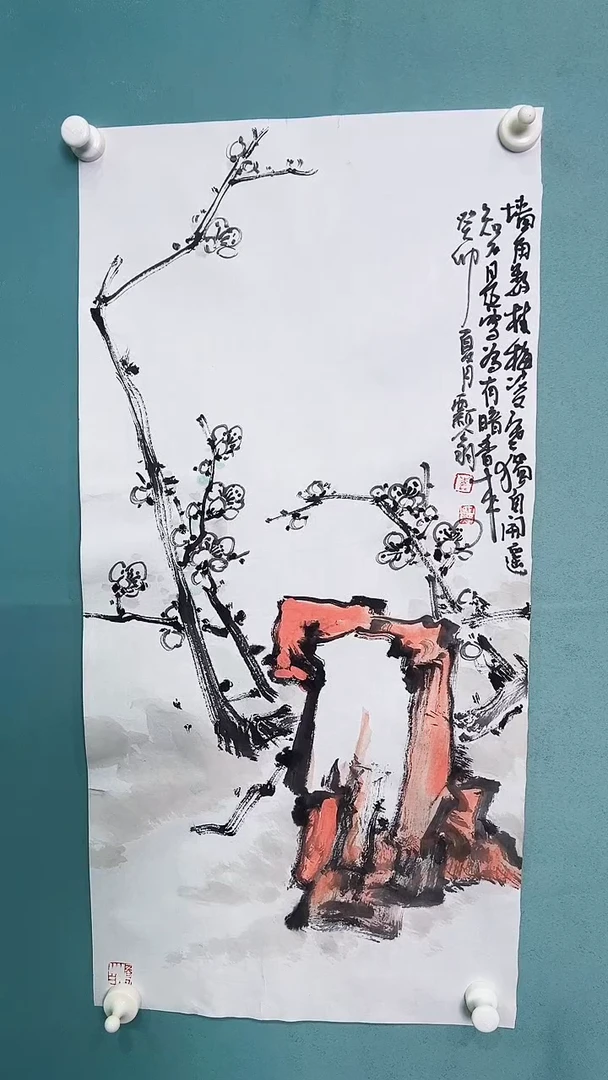 墙角數枝梅凌寒獨自開遥
知不是雪為有暗香来
癸卯夏月翁